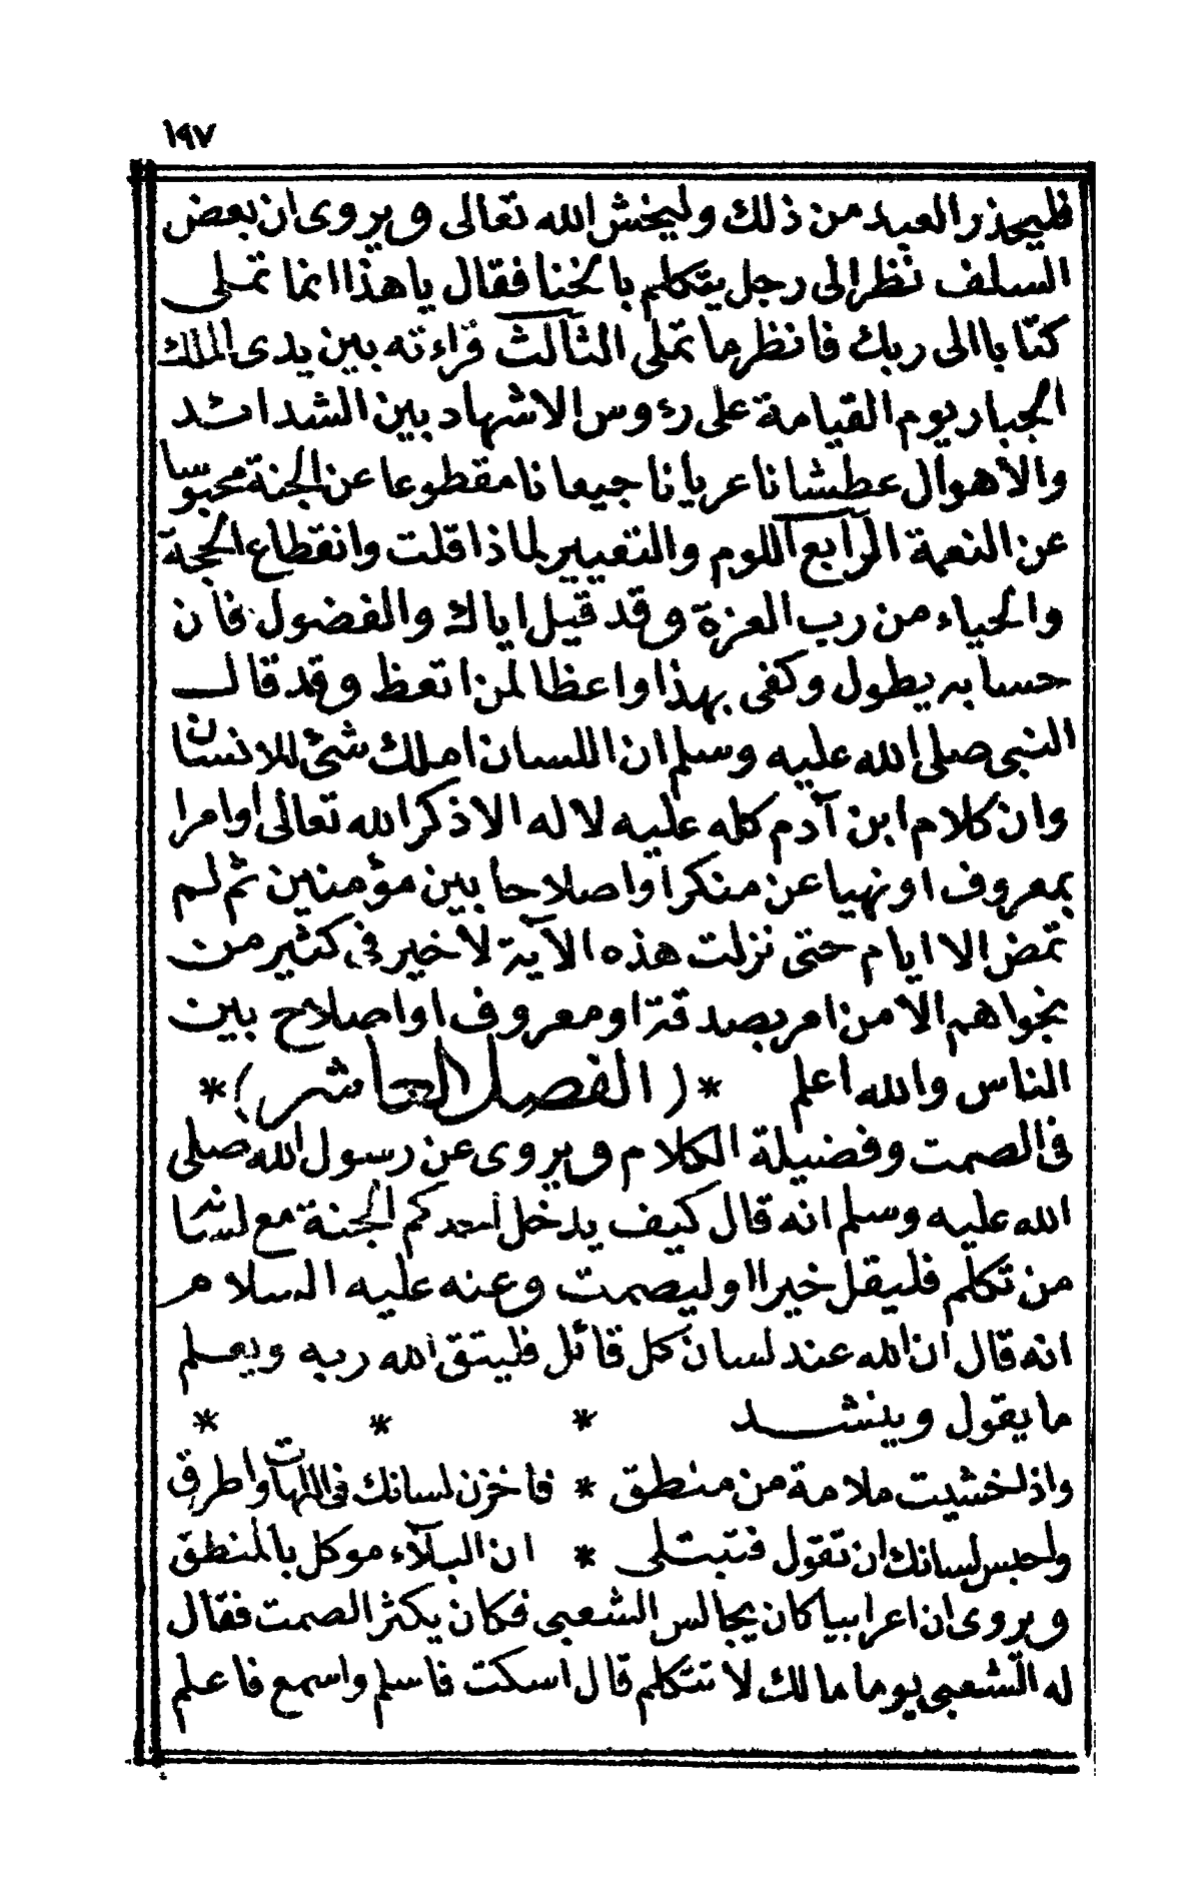 ١٩٧
فليحذر العبد من ذلك وليخش الله تعالى ويروى ان بعض
السلف نظر الى رجل يتكلم بالخنا فقال يا هذا انما تملى
كتابا الى ربك فانظر ما تملى الثالث قراءته بين يدى الملك
الجبار يوم القيامة على رءوس الاشهاد بين الشدائد
والاهوال عطشانا عريانا جيعانا مقطوعا عن الجنة محبوسا
عن النعمة الرابع اللوم والتعيير لماذا قلت وانقطاع الحجة
والحياء من رب العزة وقد قيل اياك والفضول فان
حسابه يطول وكفى بهذا واعظا لمن اتعظ وقد قال
النبى صلى الله عليه وسلم ان اللسان املك شئ للانسان
وان كلام ابن آدم كله عليه لا له الا ذكر الله تعالى او امرا
بمعروف او نهيا عن منكر او اصلاحا بين مؤمنين ثم لم
تمض الا ايام حتى نزلت هذه الآية لا خير فى كثير من
نجواهم الا من امر بصدقة او معروف او اصلاح بين
الناس والله اعلم * ( الفصل العاشر ) *
فى الصمت وفضيلة الكلام ويروى عن رسول الله صلى
الله عليه وسلم انه قال كيف يدخل احدكم الجنة مع لسانه
من تكلم فليقل خيرا او ليصمت وعنه عليه السلام
انه قال ان الله عند لسان كل قائل فليتق الله ربه ويعلم
ما يقول وينشد * * *
واذا خشيت ملامة من منطق * فاخزن لسانك فى اللهات واطرق
واحبس لسانك ان تقول فتبتلى * ان البلاء موكل بالمنطق
ويروى ان اعرابيا كان يجالس الشعبى فكان يكثر الصمت فقال
له الشعبى يوما مالك لا تتكلم قال اسكت فاسلم واسمع فاعلم